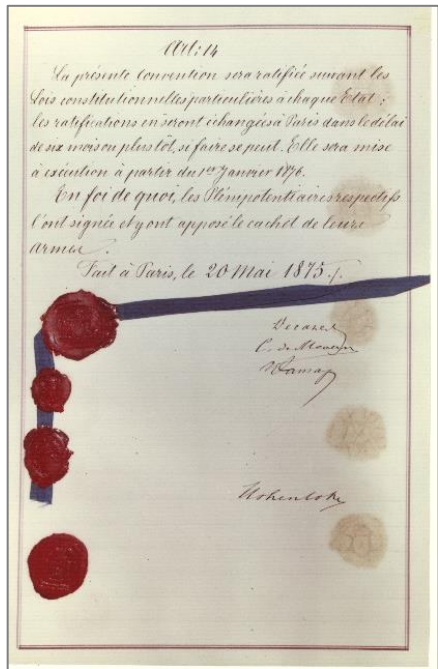 Art: 14
La présente Convention sera ratifiée suivant les
Lois constitutionnelles particulières à chaque Etat ;
les ratifications en seront échangées à Paris dans le délai
de six mois ou plus tôt, si faire se peut. Elle sera mise
à exécution à partir du 1er Janvier 1876.
En foi de quoi, les Plénipotentiaires respectifs
l'ont signée et y ont apposé le cachet de leurs
Armes.
Fait à Paris, le 20 Mai 1875 ./.
Decazes
C. de Meaux
Dumas
Hohenlohe